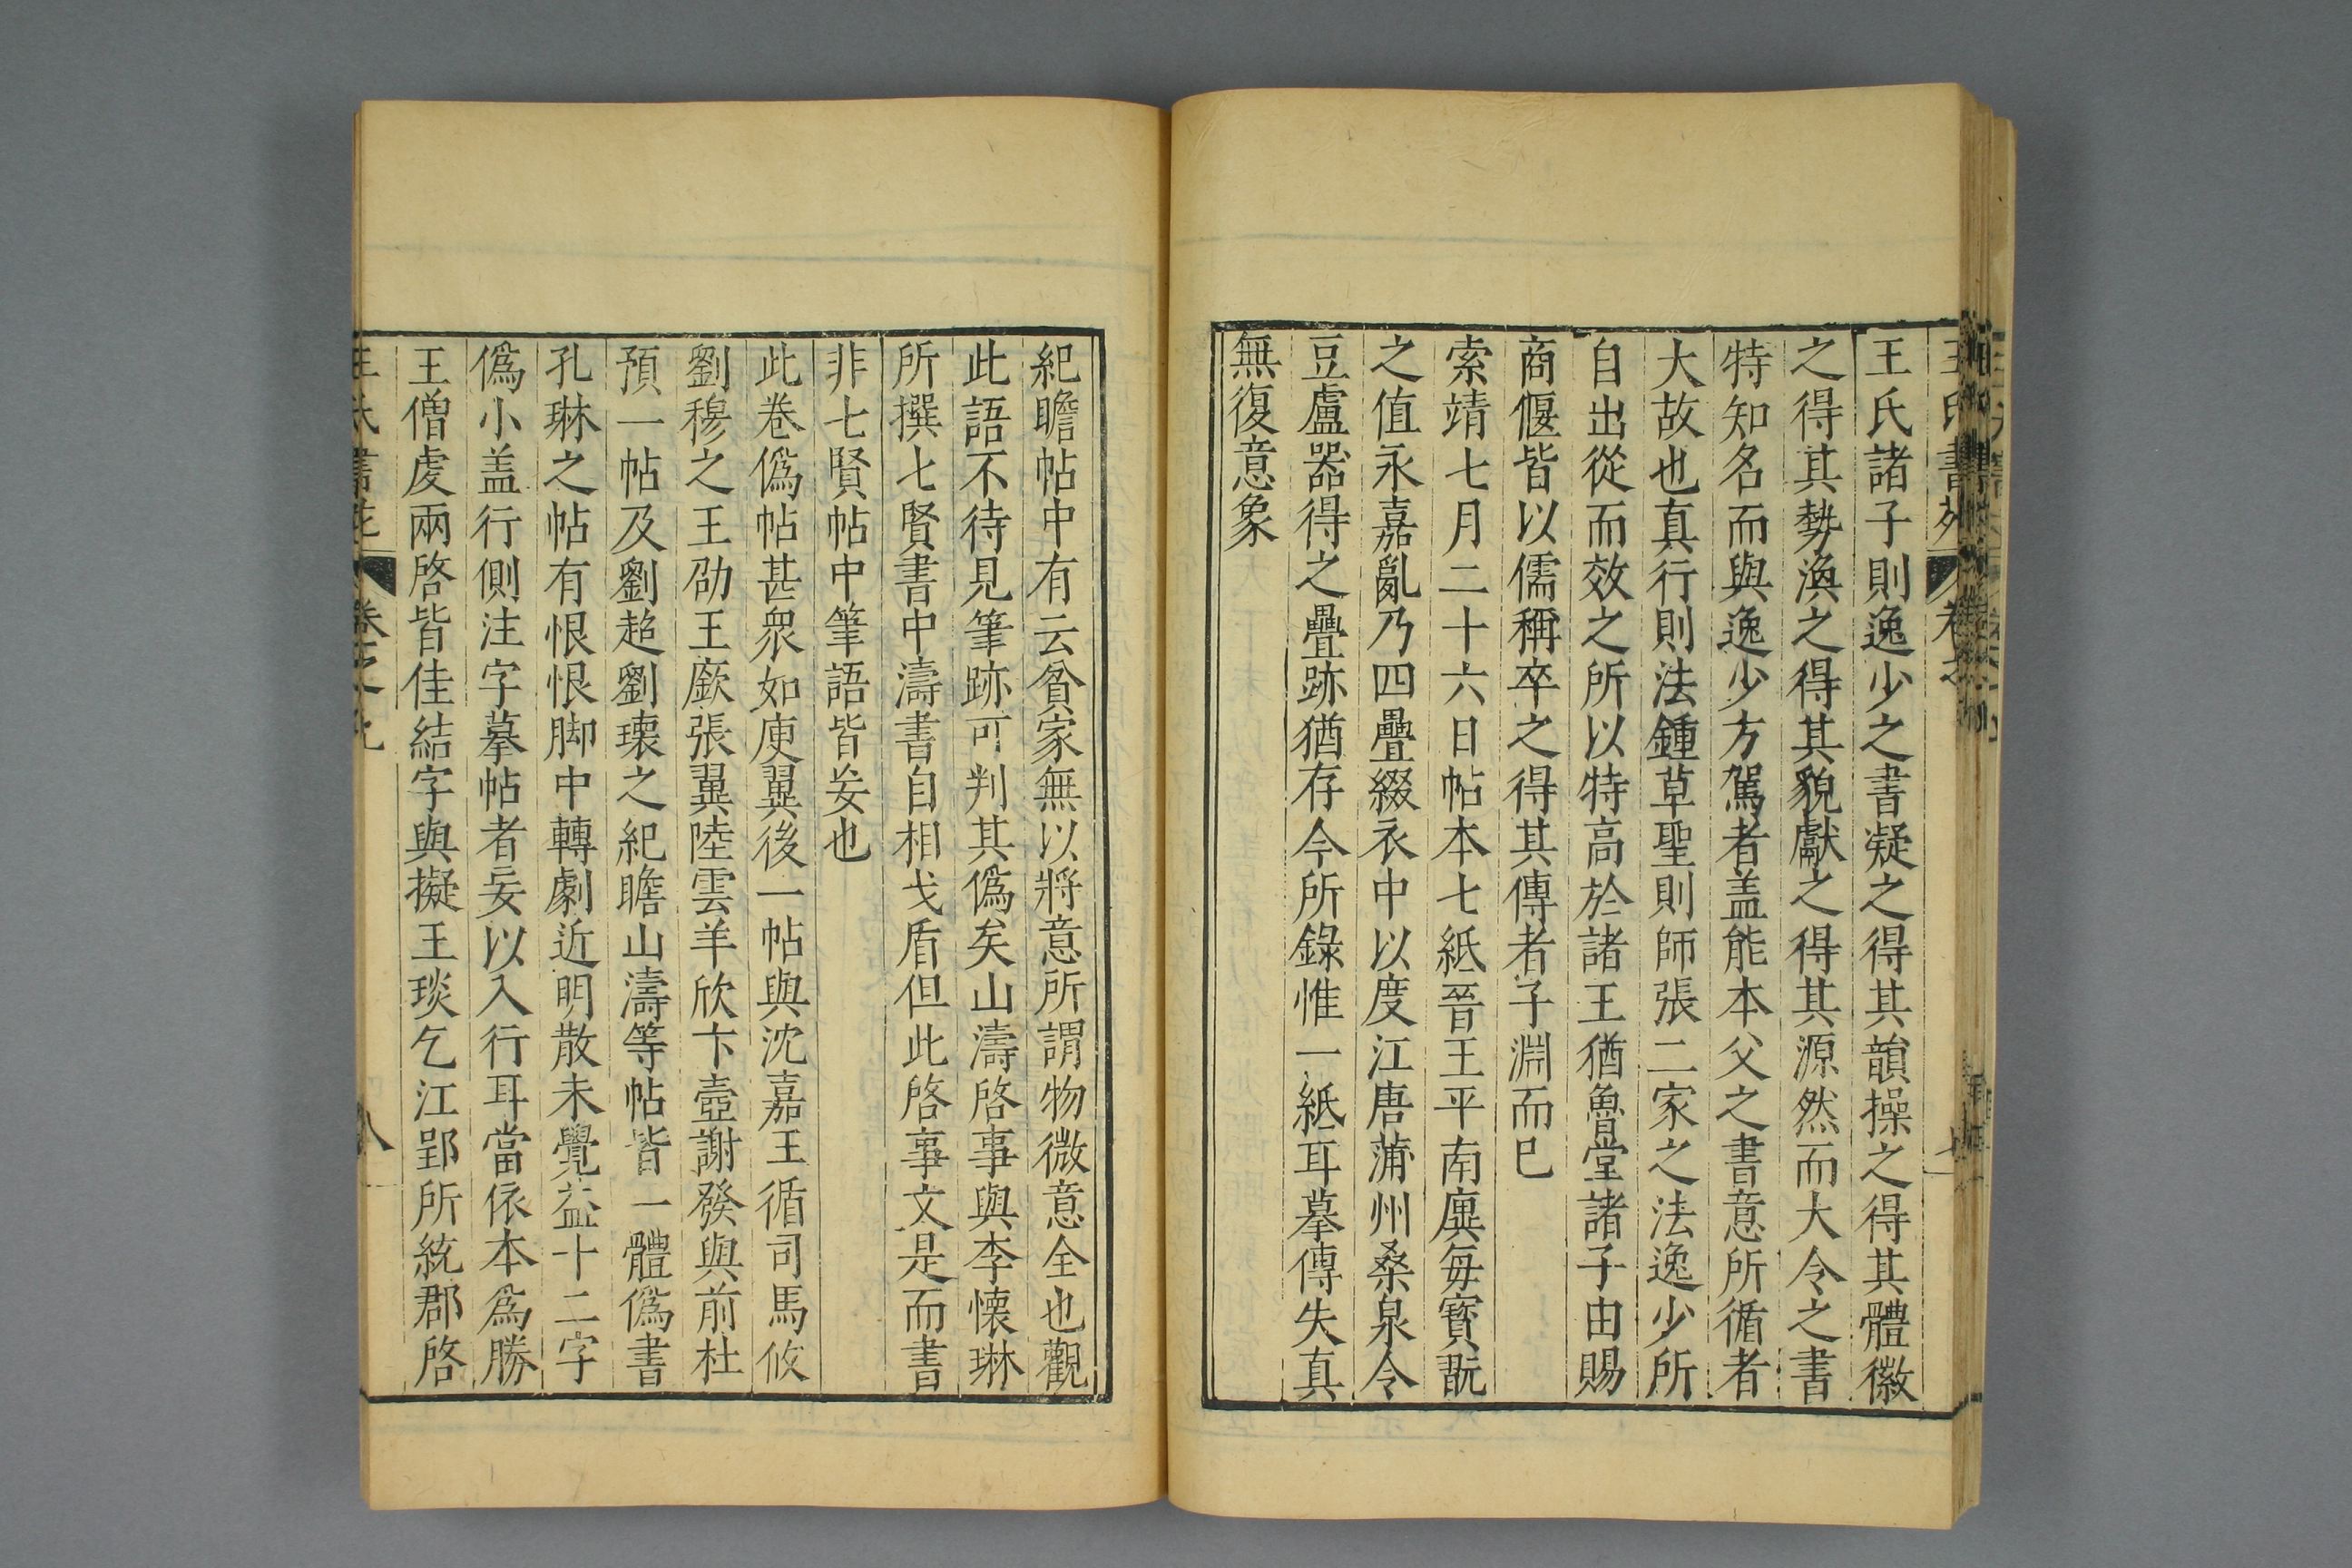 王氏書苑 卷之
王氏諸子則逸少之書凝之得其韻操之得其體徽
之得其勢渙之得其貌獻之得其源然而大令之書
特知名而與逸少方駕者盖能本父之書意所循者
大故也真行則法鍾草聖則師張二家之法逸少所
自出從而效之所以特高於諸王猶魯堂諸子由賜
商偃皆以儒稱卒之得其傳者子淵而已
索靖七月二十六日帖本七紙晉王平南廙每寶翫
之值永嘉亂乃四疊綴衣中以度江唐蒲州桑泉令
豆盧器得之疊跡猶存今所錄惟一紙耳摹傳失真
無復意象
紀瞻帖中有云貧家無以將意所謂物微意全也觀
此語不待見筆跡可判其僞矣山濤啓事與李懐琳
所撰七賢書中濤書自相戈盾但此啓事文是而書
非七賢帖中筆語皆妄也
此卷僞帖甚衆如庾翼後一帖與沈嘉王循司馬攸
劉穆之王劭王廞張翼陸雲羊欣卞壼謝發與前杜
預一帖及劉超劉瓌之紀瞻山濤等帖皆一體僞書
孔琳之帖有恨恨脚中轉劇近明散未覺益十二字
僞小盖行側注字摹帖者妄以入行耳當依本爲勝
王僧虔兩啓皆佳結字與擬王琰乞江郢所統郡啓
王氏書苑 卷之九 八